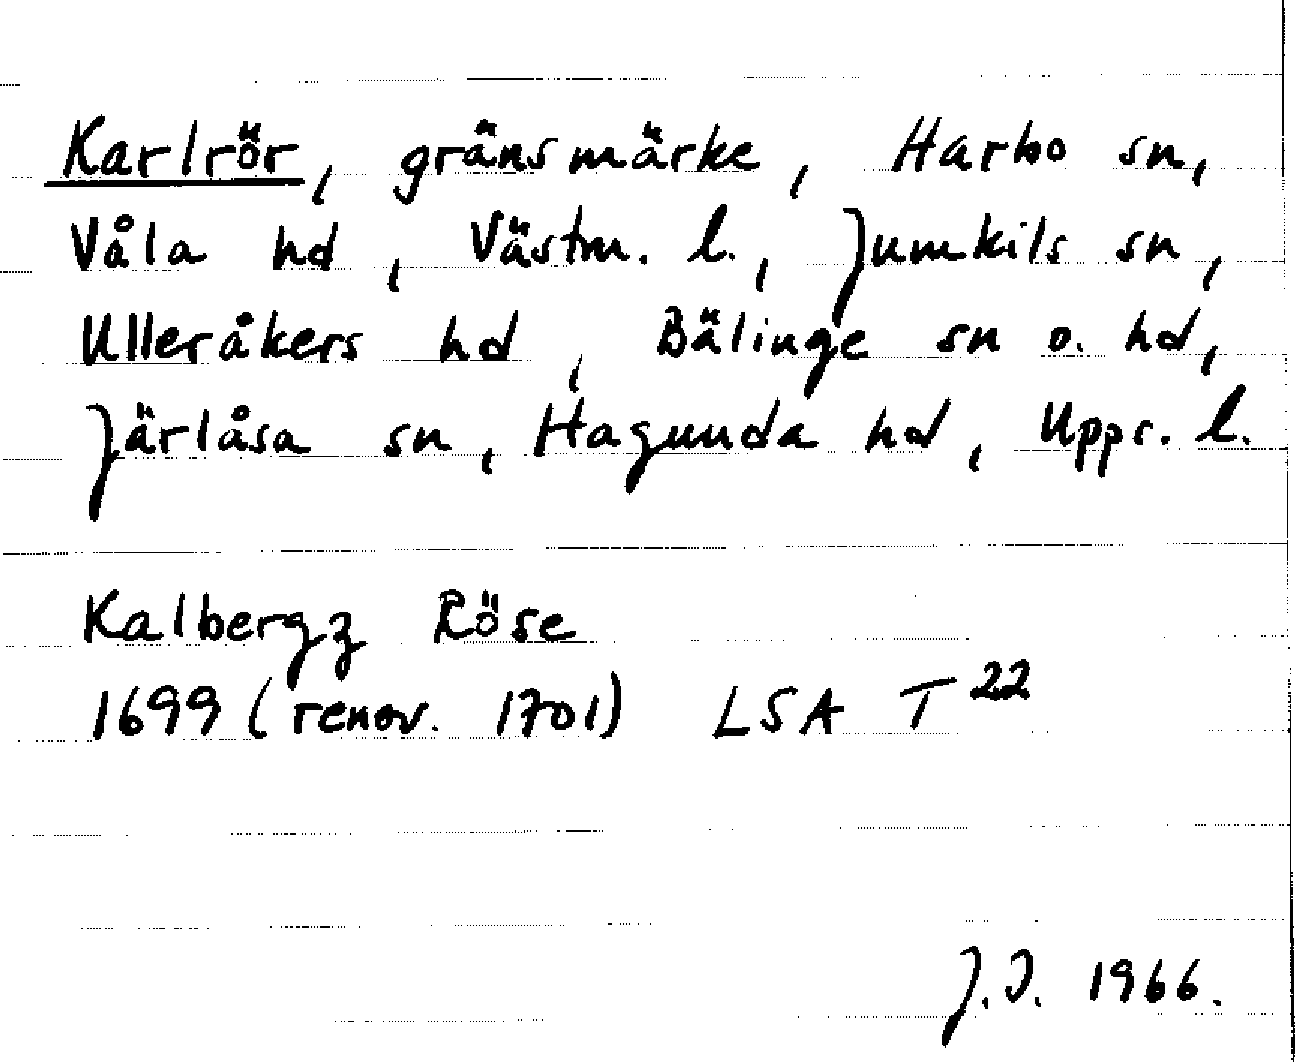 Karlrör, gränsmärke, Harbo sn,
Våla hd, Västm. l., Jumkils sn,
Ulleråkers hd, Bälinge sn o. hd,
Järlåsa sn, Hagunda hd, Upps. l.
Kalbergz Röse
1699 (renov. 1701) LSA T 22
J.I. 1966.